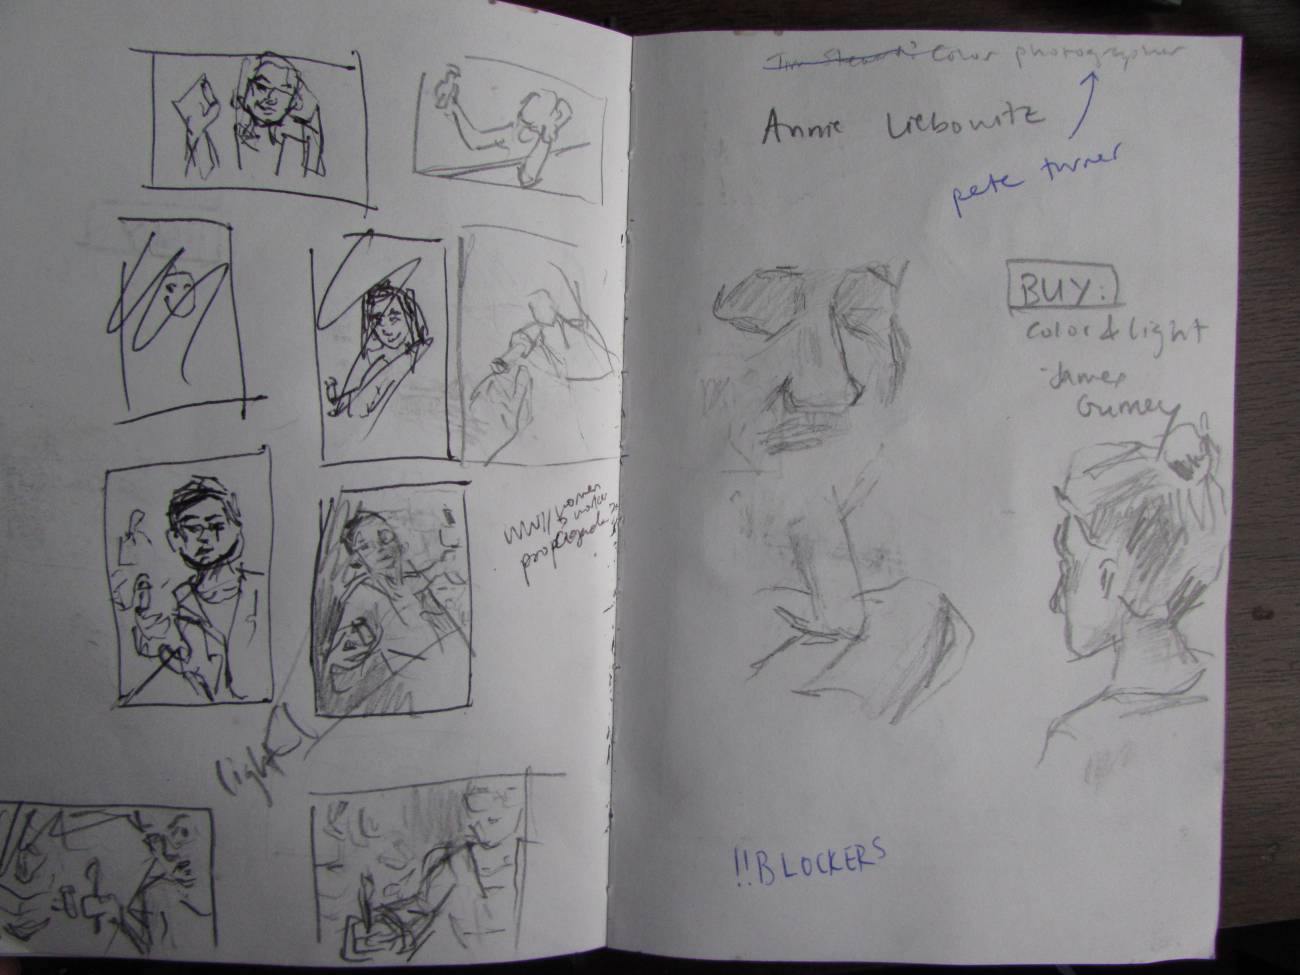 WWII women
& work
propaganda
light
color photographer
Annie Liebowitz
pete turner
BUY:
color & light
James
Gurney
!!BLOCKERS